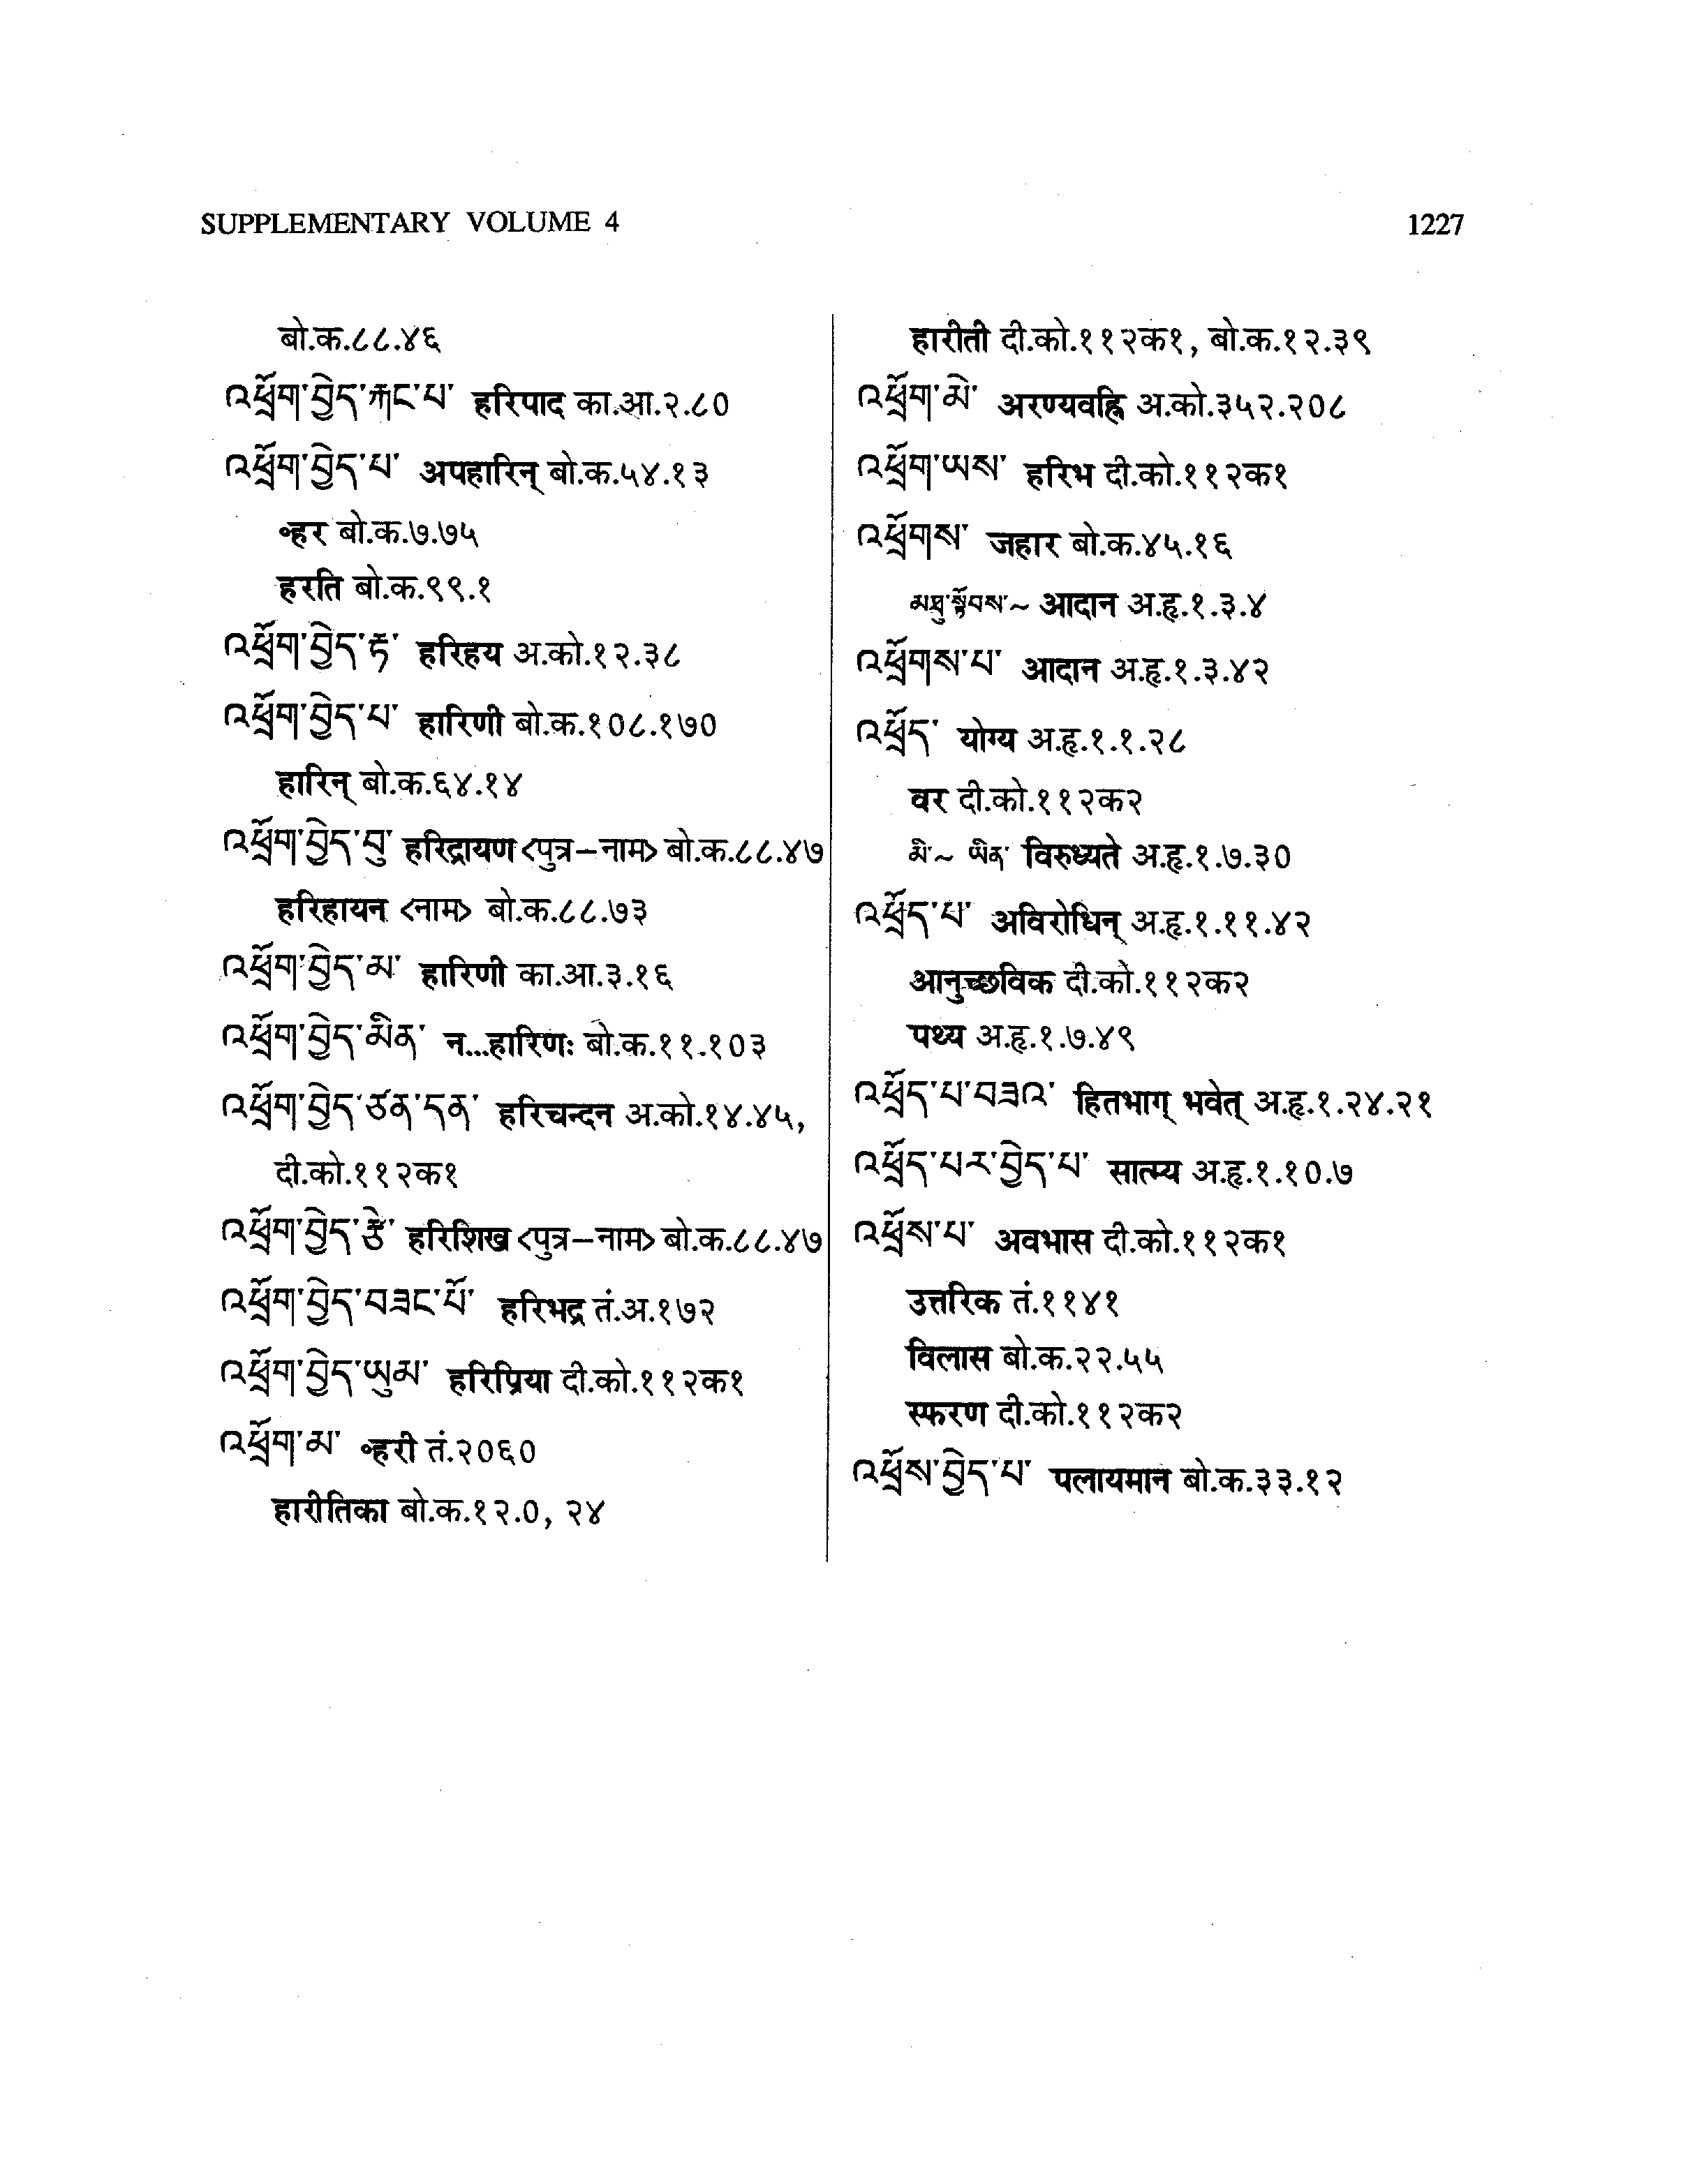 SUPPLEMENTARY VOLUME 4
1227
बो.क.८८.४६
འཕྲོག་བྱེད་རྐང་པ་ हरिपाद का.आ.२.८०
འཕྲོག་བྱེད་པ་ अपहारिन् बो.क.५४.१३
॰हर बो.क.७.७५
हरति बो.क.९९.१
འཕྲོག་བྱེད་རྟ་ हरिहय अ.को.१२.३८
འཕྲོག་བྱེད་པ་ हारिणी बो.क.१०८.१७०
हारिन् बो.क.६४.१४
འཕྲོག་བྱེད་བུ་ हरिद्रायण <पुत्र–नाम> बो.क.८८.४७
हरिहायन <नाम> बो.क.८८.७३
འཕྲོག་བྱེད་མ་ हारिणी का.आ.३.१६
འཕྲོག་བྱེད་མིན་ न...हारिणः बो.क.११.१०३
འཕྲོག་བྱེད་ཙན་དན་ हरिचन्दन अ.को.१४.४५,
दी.को.११२क१
འཕྲོག་བྱེད་རྩེ་ हरिशिख <पुत्र–नाम> बो.क.८८.४७
འཕྲོག་བྱེད་བཟང་པོ་ हरिभद्र तं.अ.१७२
འཕྲོག་བྱེད་ཡུམ་ हरिप्रिया दी.को.११२क१
འཕྲོག་མ་ ॰हरी तं.२०६०
हारीतिका बो.क.१२.०, २४
हारीती दी.को.११२क१, बो.क.१२.३९
འཕྲོག་མེ་ अरण्यवह्नि अ.को.३५२.२०८
འཕྲོག་ཡས་ हरिभ दी.को.११२क१
འཕྲོགས་ जहार बो.क.४५.१६
མཐུ་སྟོབས་~ आदान अ.हृ.१.३.४
འཕྲོགས་པ་ आदान अ.हृ.१.३.४२
འཕྲོད་ योग्य अ.हृ.१.१.२८
वर दी.को.११२क२
མི་~ ཡིན་ विरुध्यते अ.हृ.१.७.३०
འཕྲོད་པ་ अविरोधिन् अ.हृ.१.११.४२
आनुच्छविक दी.को.११२क२
पथ्य अ.हृ.१.७.४९
འཕྲོད་པ་བཟའ་ हितभाग् भवेत् अ.हृ.१.२४.२१
འཕྲོད་པར་བྱེད་པ་ सात्म्य अ.हृ.१.१०.७
འཕྲོས་པ་ अवभास दी.को.११२क१
उत्तरिक तं.११४१
विलास बो.क.२२.५५
स्फरण दी.को.११२क२
འཕྲོས་བྱེད་པ་ पलायमान बो.क.३३.१२